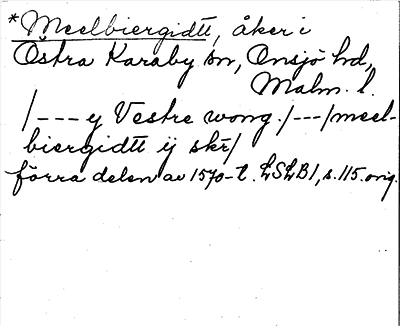 *Meelbiergidtt, åker i
Östra Karaby sn, Onsjö hd,
Malm. l.
/---y Vestre wong./---/meel-
biergidtt ij skr/
förra delen av 1570-t. LSLB1, s. 115. orig.